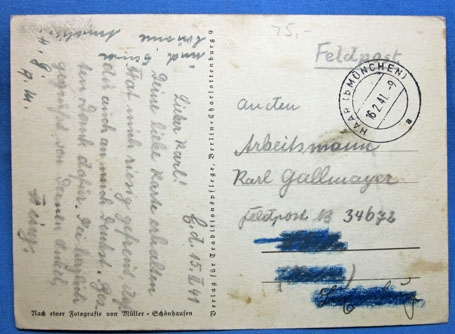 15.II.41
Lieber Karl!
Deine liebe Karte erhalten
Hat mich riesig gefreut daß
Du auch an mich denkst. Bes
ten Dank dafür. Sei herzlich
gegrüßt von Deinem Onkel
und Tante
Verlag für Traditionspflege, Berlin-Charlottenburg 9
Nach einer Fotografie von Müller - Schönhausen
75,-
Feldpost
HAAR (b MÜNCHEN)
16.2.41.-9
a
An den
Arbeitsmann
Karl Gallmayer
Feldpost № 34672